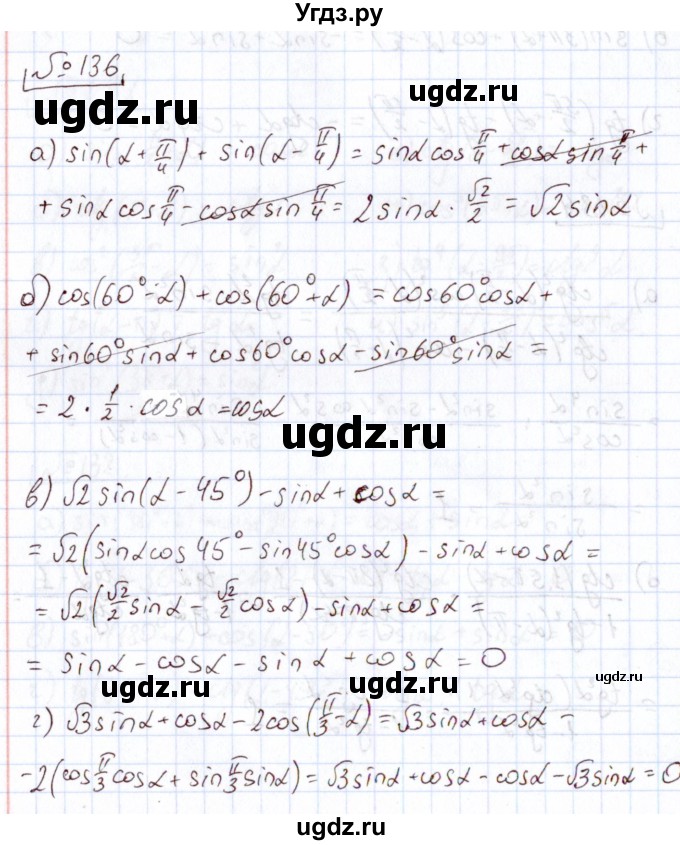 Угдз.ру
№136
ugdz.ru
а) sin(α + π/4) + sin(α − π/4) = sinα cos π/4 + cosα sin π/4 +
+ sinα cos π/4 − cosα sin π/4 = 2 sinα · √2/2 = √2 sinα
ugdz.ru
б) cos(60° − α) + cos(60° + α) = cos60° cosα +
+ sin60° sinα + cos60° cosα − sin60° sinα =
= 2 · 1/2 · cosα = cosα
ugdz.ru
в) √2 sin(α − 45°) − sinα + cosα =
= √2 (sinα cos 45° − sin45° cosα) − sinα + cosα =
ugdz.ru
= √2 (√2/2 sinα − √2/2 cosα) − sinα + cosα =
= sinα − cosα − sinα + cosα = 0
ugdz.ru
ugdz.ru
ugdz.ru
г) √3 sinα + cosα − 2cos(π/3 − α) = √3 sinα + cosα −
− 2(cos π/3 cosα + sin π/3 sinα) = √3 sinα + cosα − cosα − √3 sinα = 0
ugdz.ru
ugdz.ru